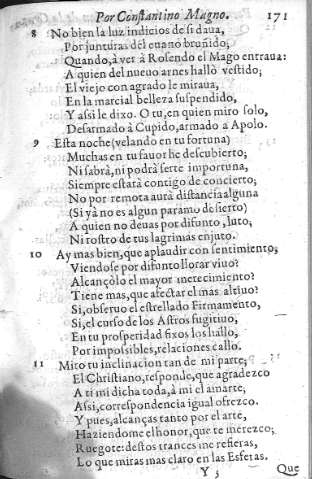 Por Constantino Magno. 171
8 No bien la luz indicios de si daua,
Por junturas del euano bruñido;
Quando, à ver à Rosendo el Mago entraua:
A quien del nueuo arnes hallò vestido;
El viejo con agrado le miraua,
En la marcial belleza suspendido,
Y assi le dixo. O tu, en quien miro solo,
Desarmado à Cupido, armado a Apolo.
9 Esta noche (velando en tu fortuna)
Muchas en tu fauor he descubierto;
Ni sabrà, ni podrà serte importuna,
Siempre estarà contigo de concierto;
No por remota aurà distancia alguna
(Si yà no es algun paramo desierto)
A quien no deuas por difunto, luto;
Ni rostro de tus lagrimas enjuto.
10 Ay mas bien, que aplaudir con sentimiento;
Viendose por difunto llorar viuo?
Alcançòlo el mayor merecimiento?
Tiene mas, que afectar el mas altiuo?
Si, obseruo el estrellado Firmamento,
Si, el curso de los Astros fugitiuo,
En tu prosperidad fixos los hallo,
Por impossibles, relaciones callo.
11 Mito tu inclinacion tan de mi parte;
El Christiano, responde, que agradezco
A ti mi dicha toda, à mi el amarte,
Assi, correspondencia igual ofrezco.
Y pues, alcanças tanto por el arte,
Haziendome el honor, que te merezco;
Ruegote: destos trances me refieras,
Lo que miras mas claro en las Esferas.
Y 3 Que